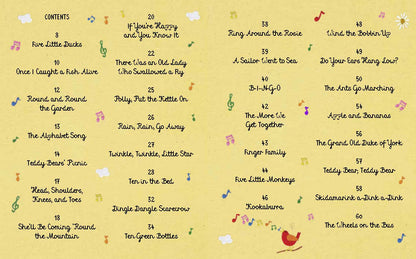 CONTENTS
8
Five Little Ducks
10
Once I Caught a Fish Alive
12
Round and Round
the Garden
13
The Alphabet Song
14
Teddy Bears' Picnic
17
Head, Shoulders,
Knees, and Toes
18
She'll Be Coming 'Round
the Mountain
20
If You're Happy
and You Know It
22
There Was an Old Lady
Who Swallowed a Fly
25
Polly, Put the Kettle On
26
Rain, Rain, Go Away
27
Twinkle, Twinkle, Little Star
28
Ten in the Bed
32
Dingle Dangle Scarecrow
34
Ten Green Bottles
38
Ring Around the Rosie
39
A Sailor Went to Sea
40
B-I-N-G-O
42
The More We
Get Together
43
Finger Family
44
Five Little Monkeys
46
Kookaburra
48
Wind the Bobbin Up
49
Do Your Ears Hang Low?
50
The Ants Go Marching
54
Apples and Bananas
56
The Grand Old Duke of York
57
Teddy Bear, Teddy Bear
58
Skidamarink a-Dink a-Dink
60
The Wheels on the Bus